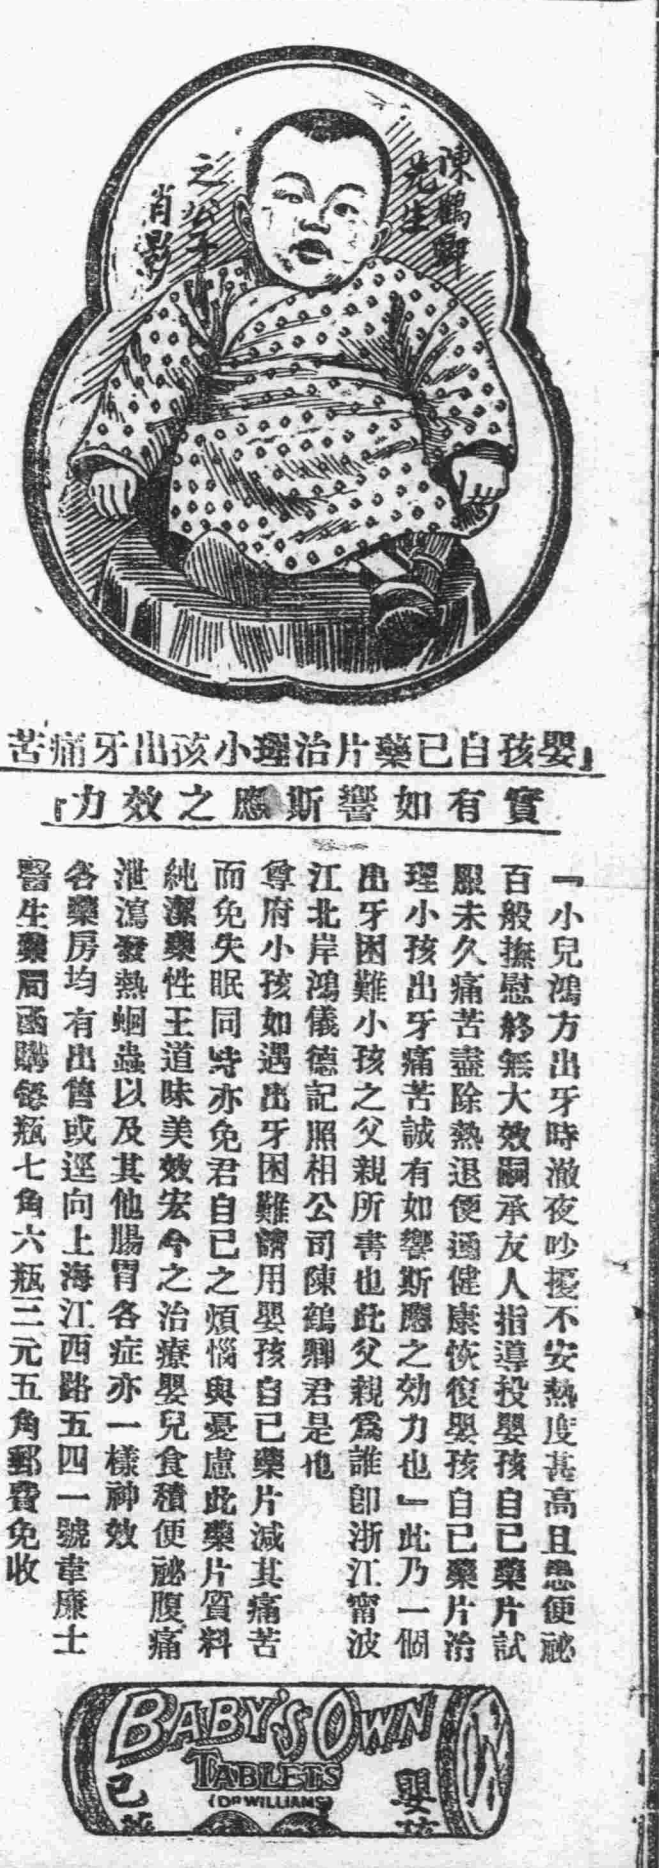 陳鶴卿
先生
之公子
肖影
嬰孩自已藥片治理小孩出牙痛苦
實有如響斯應之效力
『小兒鴻方出牙時澈夜吵擾不安熱度甚高且患便祕
百般撫慰終無大效嗣承友人指導投嬰孩自已藥片試
服未久痛苦盡除熱退便通健康恢復嬰孩自已藥片治
理小孩出牙痛苦誠有如響斯應之効力也』此乃一個
出牙困難小孩之父親所書也此父親爲誰卽浙江甯波
江北岸鴻儀德記照相公司陳鶴卿君是也
尊府小孩如遇出牙困難請用嬰孩自已藥片減其痛苦
而免失眠同時亦免君自已之煩惱與憂慮此藥片質料
純潔藥性王道味美效宏今之治療嬰兒食積便祕腹痛
泄瀉發熱蛔蟲以及其他腸胃各症亦一樣神效
各藥房均有出售或逕向上海江西路五四一號韋廉士
醫生藥局函購每瓶七角六瓶三元五角郵費免收
BABY'S OWN
TABLETS
(DR WILLIAMS)
嬰孩
已藥